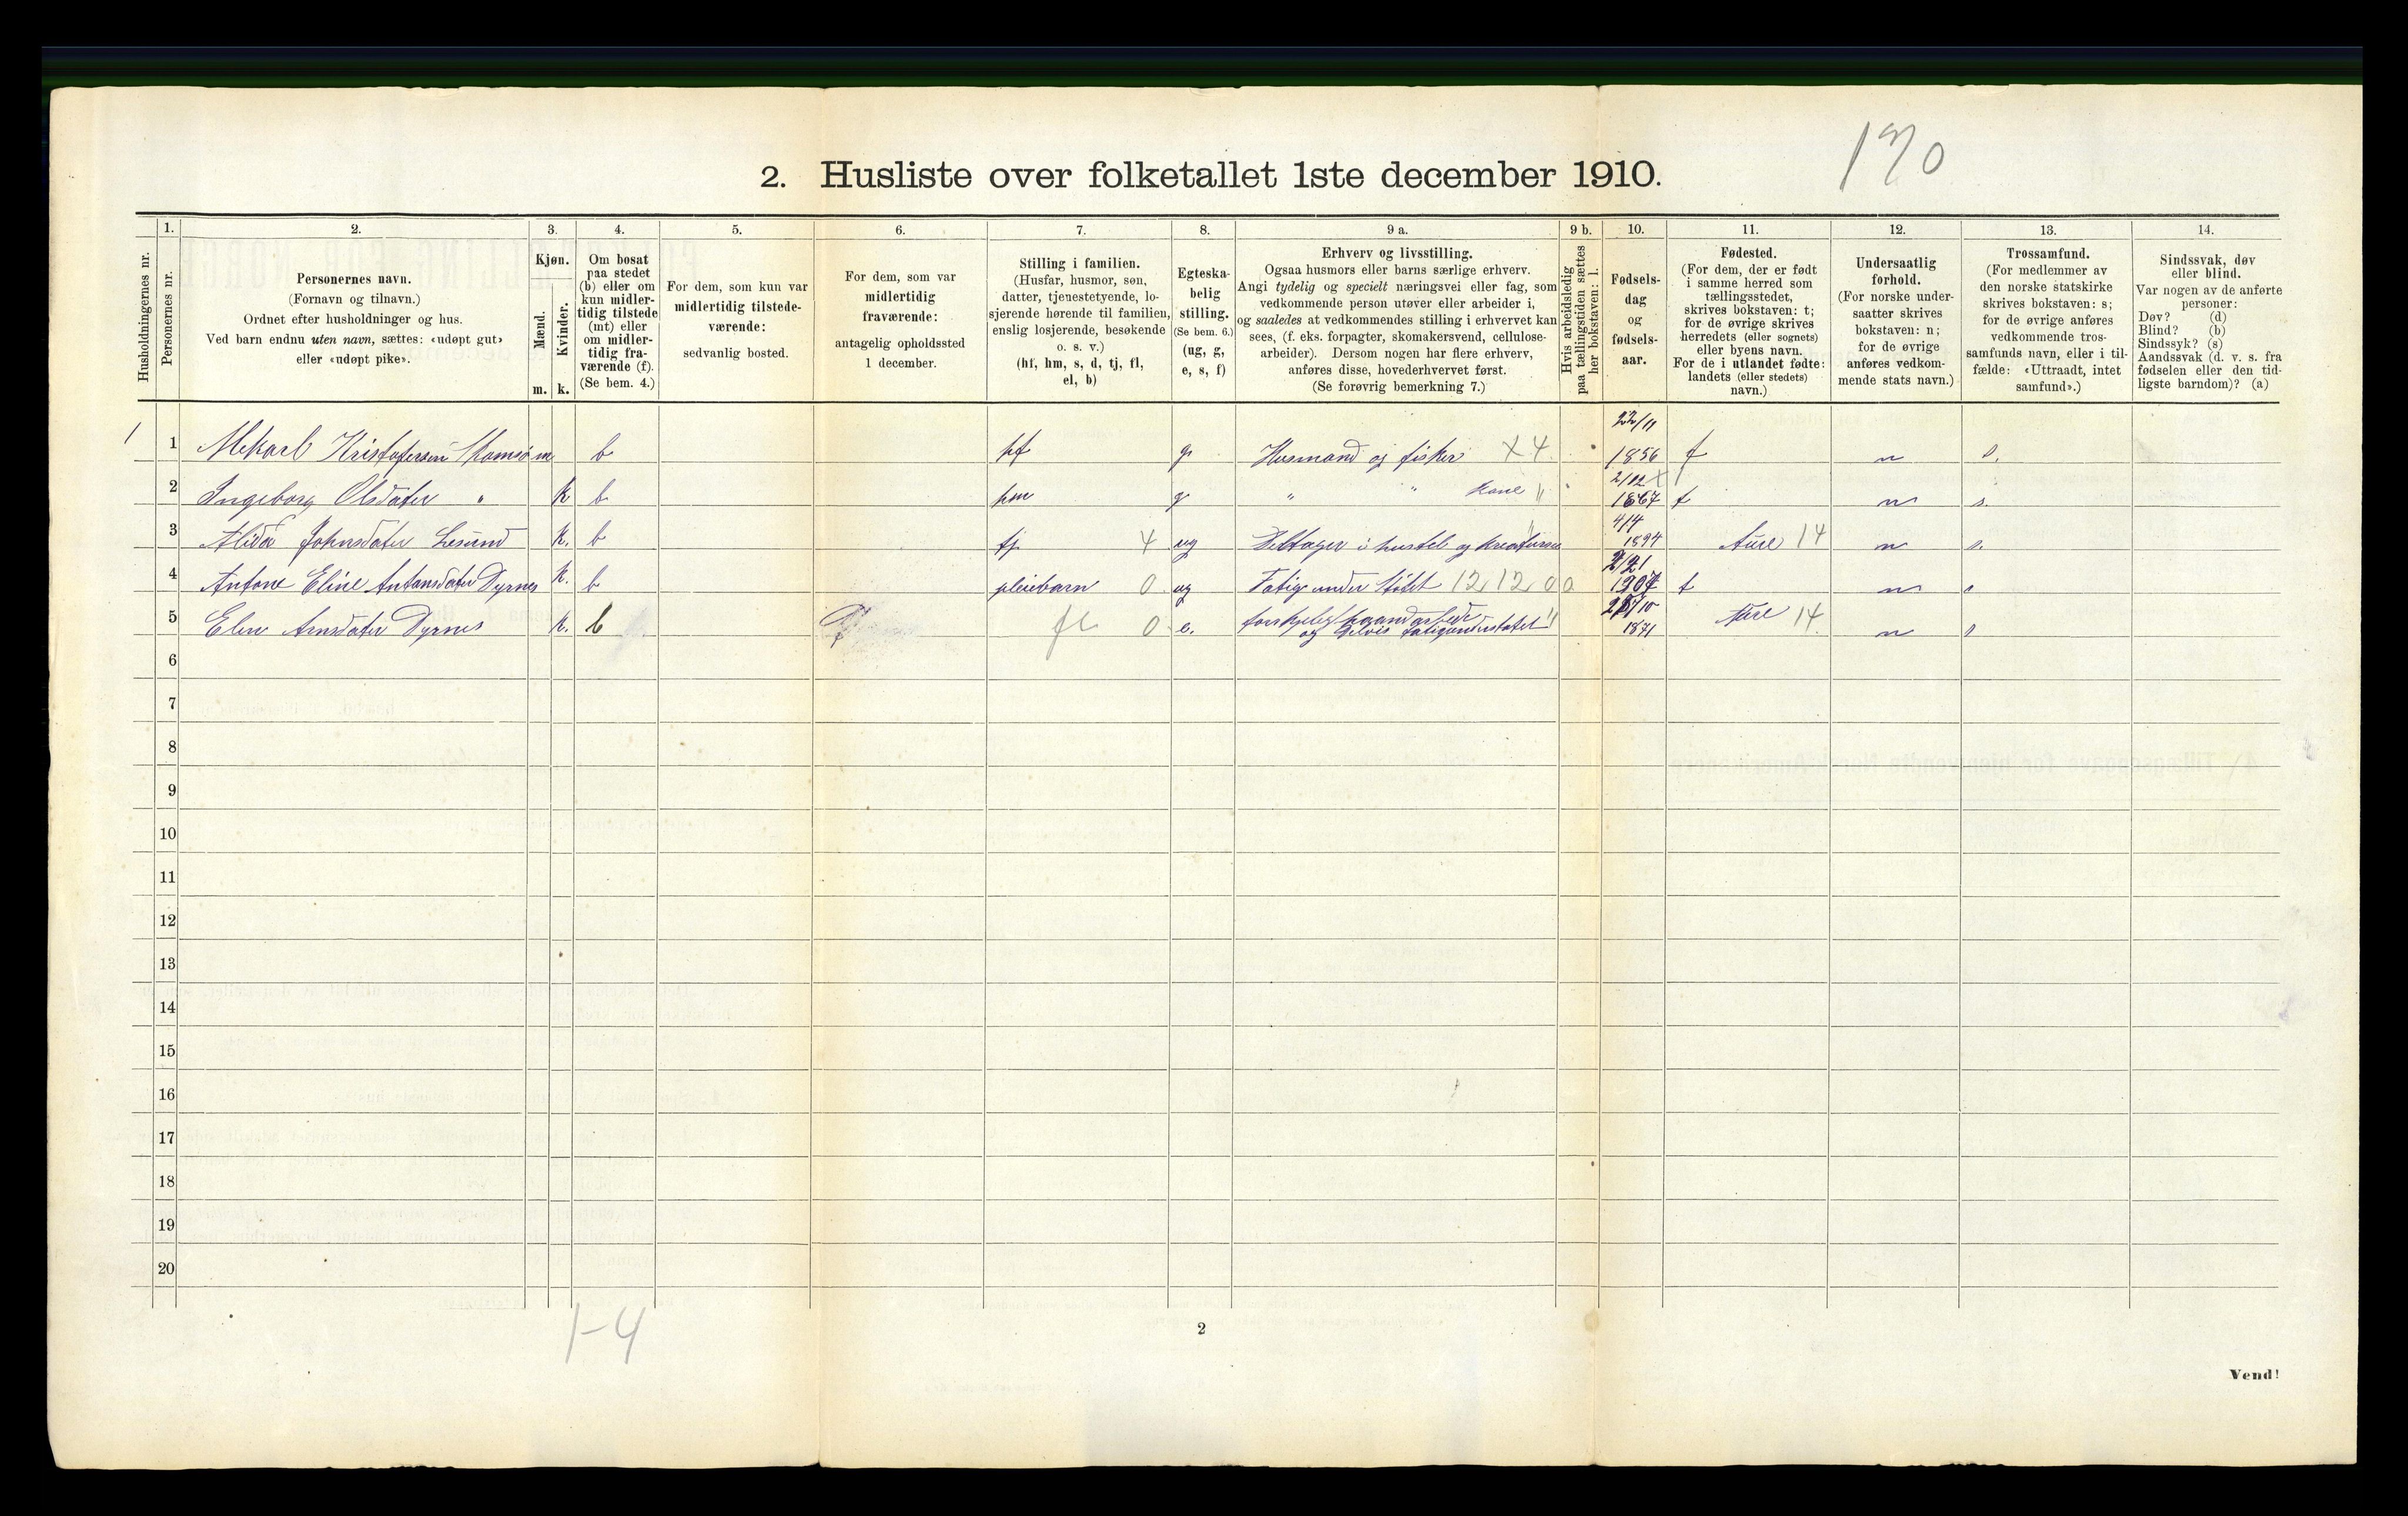 170
2. Husliste over folketallet 1ste december 1910.
Husholdningernes nr.
1. Personernes nr.
2. Personernes navn. (Fornavn og tilnavn.) Ordnet efter husholdninger og hus. Ved barn endnu uten navn, sættes: «udøpt gut» eller «udøpt pike».
3. Kjøn. Mænd. m. Kvinder. k.
4. Om bosat paa stedet (b) eller om kun midlertidig tilstede (mt) eller om midlertidig fraværende (f). (Se bem. 4.)
5. For dem, som kun var midlertidig tilstedeværende: sedvanlig bosted.
6. For dem, som var midlertidig fraværende: antagelig opholdssted 1 december.
7. Stilling i familien. (Husfar, husmor, søn, datter, tjenestetyende, losjerende hørende til familien, enslig losjerende, besøkende o. s. v.) (hf, hm, s, d, tj, fl, el, b)
8. Egteskabelig stilling. (Se bem. 6.) (ug, g, e, s, f)
9 a. Erhverv og livsstilling. Ogsaa husmors eller barns særlige erhverv. Angi tydelig og specielt næringsvei eller fag, som vedkommende person utøver eller arbeider i, og saaledes at vedkommendes stilling i erhvervet kan sees, (f. eks. forpagter, skomakersvend, cellulosearbeider). Dersom nogen har flere erhverv, anføres disse, hovederhvervet først. (Se forøvrig bemerkning 7.)
9 b. Hvis arbeidsledig paa tællingstiden sættes her bokstaven: l.
10. Fødselsdag og fødselsaar.
11. Fødested. (For dem, der er født i samme herred som tællingsstedet, skrives bokstaven: t; for de øvrige skrives herredets (eller sognets) eller byens navn. For de i utlandet fødte: landets (eller stedets) navn.)
12. Undersaatlig forhold. (For norske undersaatter skrives bokstaven: n; for de øvrige anføres vedkommende stats navn.)
13. Trossamfund. (For medlemmer av den norske statskirke skrives bokstaven: s; for de øvrige anføres vedkommende trossamfunds navn, eller i tilfælde: «Uttraadt, intet samfund».)
14. Sindssvak, døv eller blind. Var nogen av de anførte personer: Døv? (d) Blind? (b) Sindssyk? (s) Aandssvak (d. v. s. fra fødselen eller den tidligste barndom)? (a)
1 1 Mekael Kristofersen m b hf g Husmand og fisker X 4 22/11 1856 t n s.
2 Ingeborg Olsdater " k b hm g " " kone " 2/12 1867 t n s.
3 Alida Johnsdater Lesund k. b tj 4 ug Deltager i hustel og kreaturs 4/4 1894 Aure 14 n s.
4 Antone Eline Antonsdater Dyrnes k. b pleiebarn 0 ug Fatig understøtet 12,12,0 0 1907 t n s
5 Elen Arnsdater Dyrnes k. b fl 0 e. forskjelig haandarbeide og delvis fatigunderstøtet " 1871 Aure 14 n s
6
7
8
9
10
11
12
13
14
15
16
17
18
19
20
1-4
2
Vend!